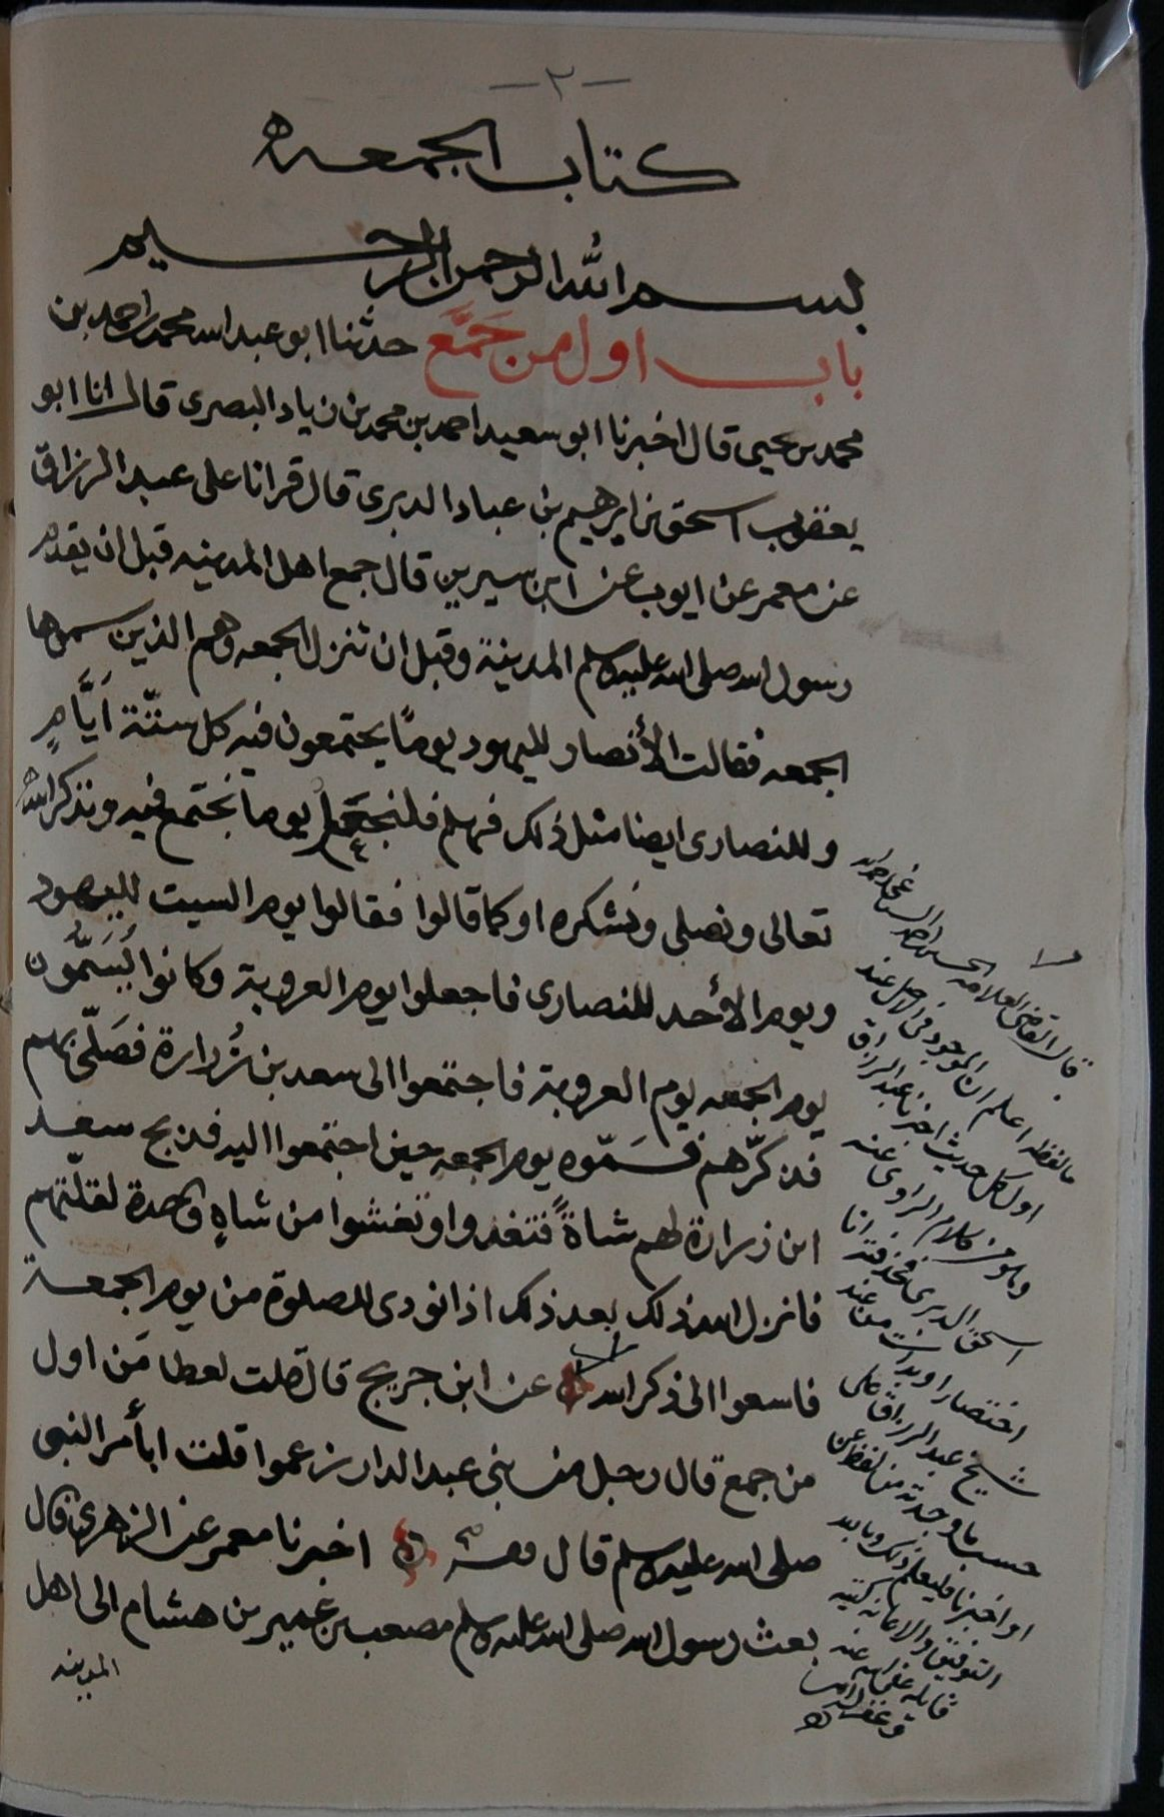 -٢-
كتاب الجمعه
بسم الله الرحمن الرحيم
باب اول من جَمَّع حدثنا ابو عبد الله محمد بن احمد بن
محمد بن يحيى قال اخبرنا ابو سعيد احمد بن محمد بن زياد البصرى قال انا ابو
يعقوب اسحق بن ابرهيم بن عباد الدبرى قال قرانا على عبد الرزاق
عن معمر عن ايوب عن ابن سيرين قال جمع اهل المدينه قبل ان يقدم
رسول الله صلى الله عليه وسلم المدينة وقبل ان تنزل الجمعه وهم الذين سموها
الجمعه فقالت الأنصار لليهود يومًا يجتمعون فيه كل ستّة اَيَّامٍ
وللنصارى ايضا مثل ذلك فهلم فلنجعل يوما نجتمع فيه ونذكر الله
تعالى ونصلى ونشكره او كما قالوا فقالوا يوم السبت لليهود
ويوم الأحد للنصارى فاجعلوا يوم العروبة وكانوا يُسَمُّون
يوم الجمعه يوم العروبة فاجتمعوا الى سعد بن زُرارة فصَلّى بهم
فذكرّهم فسَمّوه يوم الجمعه حين اجتمعوا اليه فذبح سعد
ابن زرارة لهم شاةً فتغدوا وتغشوا من شاةٍ واحدة لقلّتهم
فانزل الله ذلك بعد ذلك اذا نودى للصلوة من يوم الجمعة
فاسعوا الى ذكر الله عن ابن جريج قال قلت لعطا مَن اول
من جمع قال رجل من بنى عبد الدار زعموا قلت ابأمر النبى
صلى الله عليه وسلم قال فمه اخبرنا معمر عن الزهرى قال
بعث رسول الله صلى الله عليه وسلم مصعب بن عمير بن هشام الى اهل
المدينه
قال القاضى العلامه الحسين بن احمد
ما لفظه اعلم ان الموجود فى الاصل عند
اول كل حديث اخبرنا عبد الرزاق
وهو من كلام الراوى عنه
اسحق الدبرى فحذفته انا
اختصارا وبدات من عند
شيخ عبد الرزاق على
حسب ما وجدته من لفظ عن
او اخبرنا فليعلم ذلك وبالله
التوفيق والاعانه كتبه
قابله عفى الله عنه
وغفر له امين